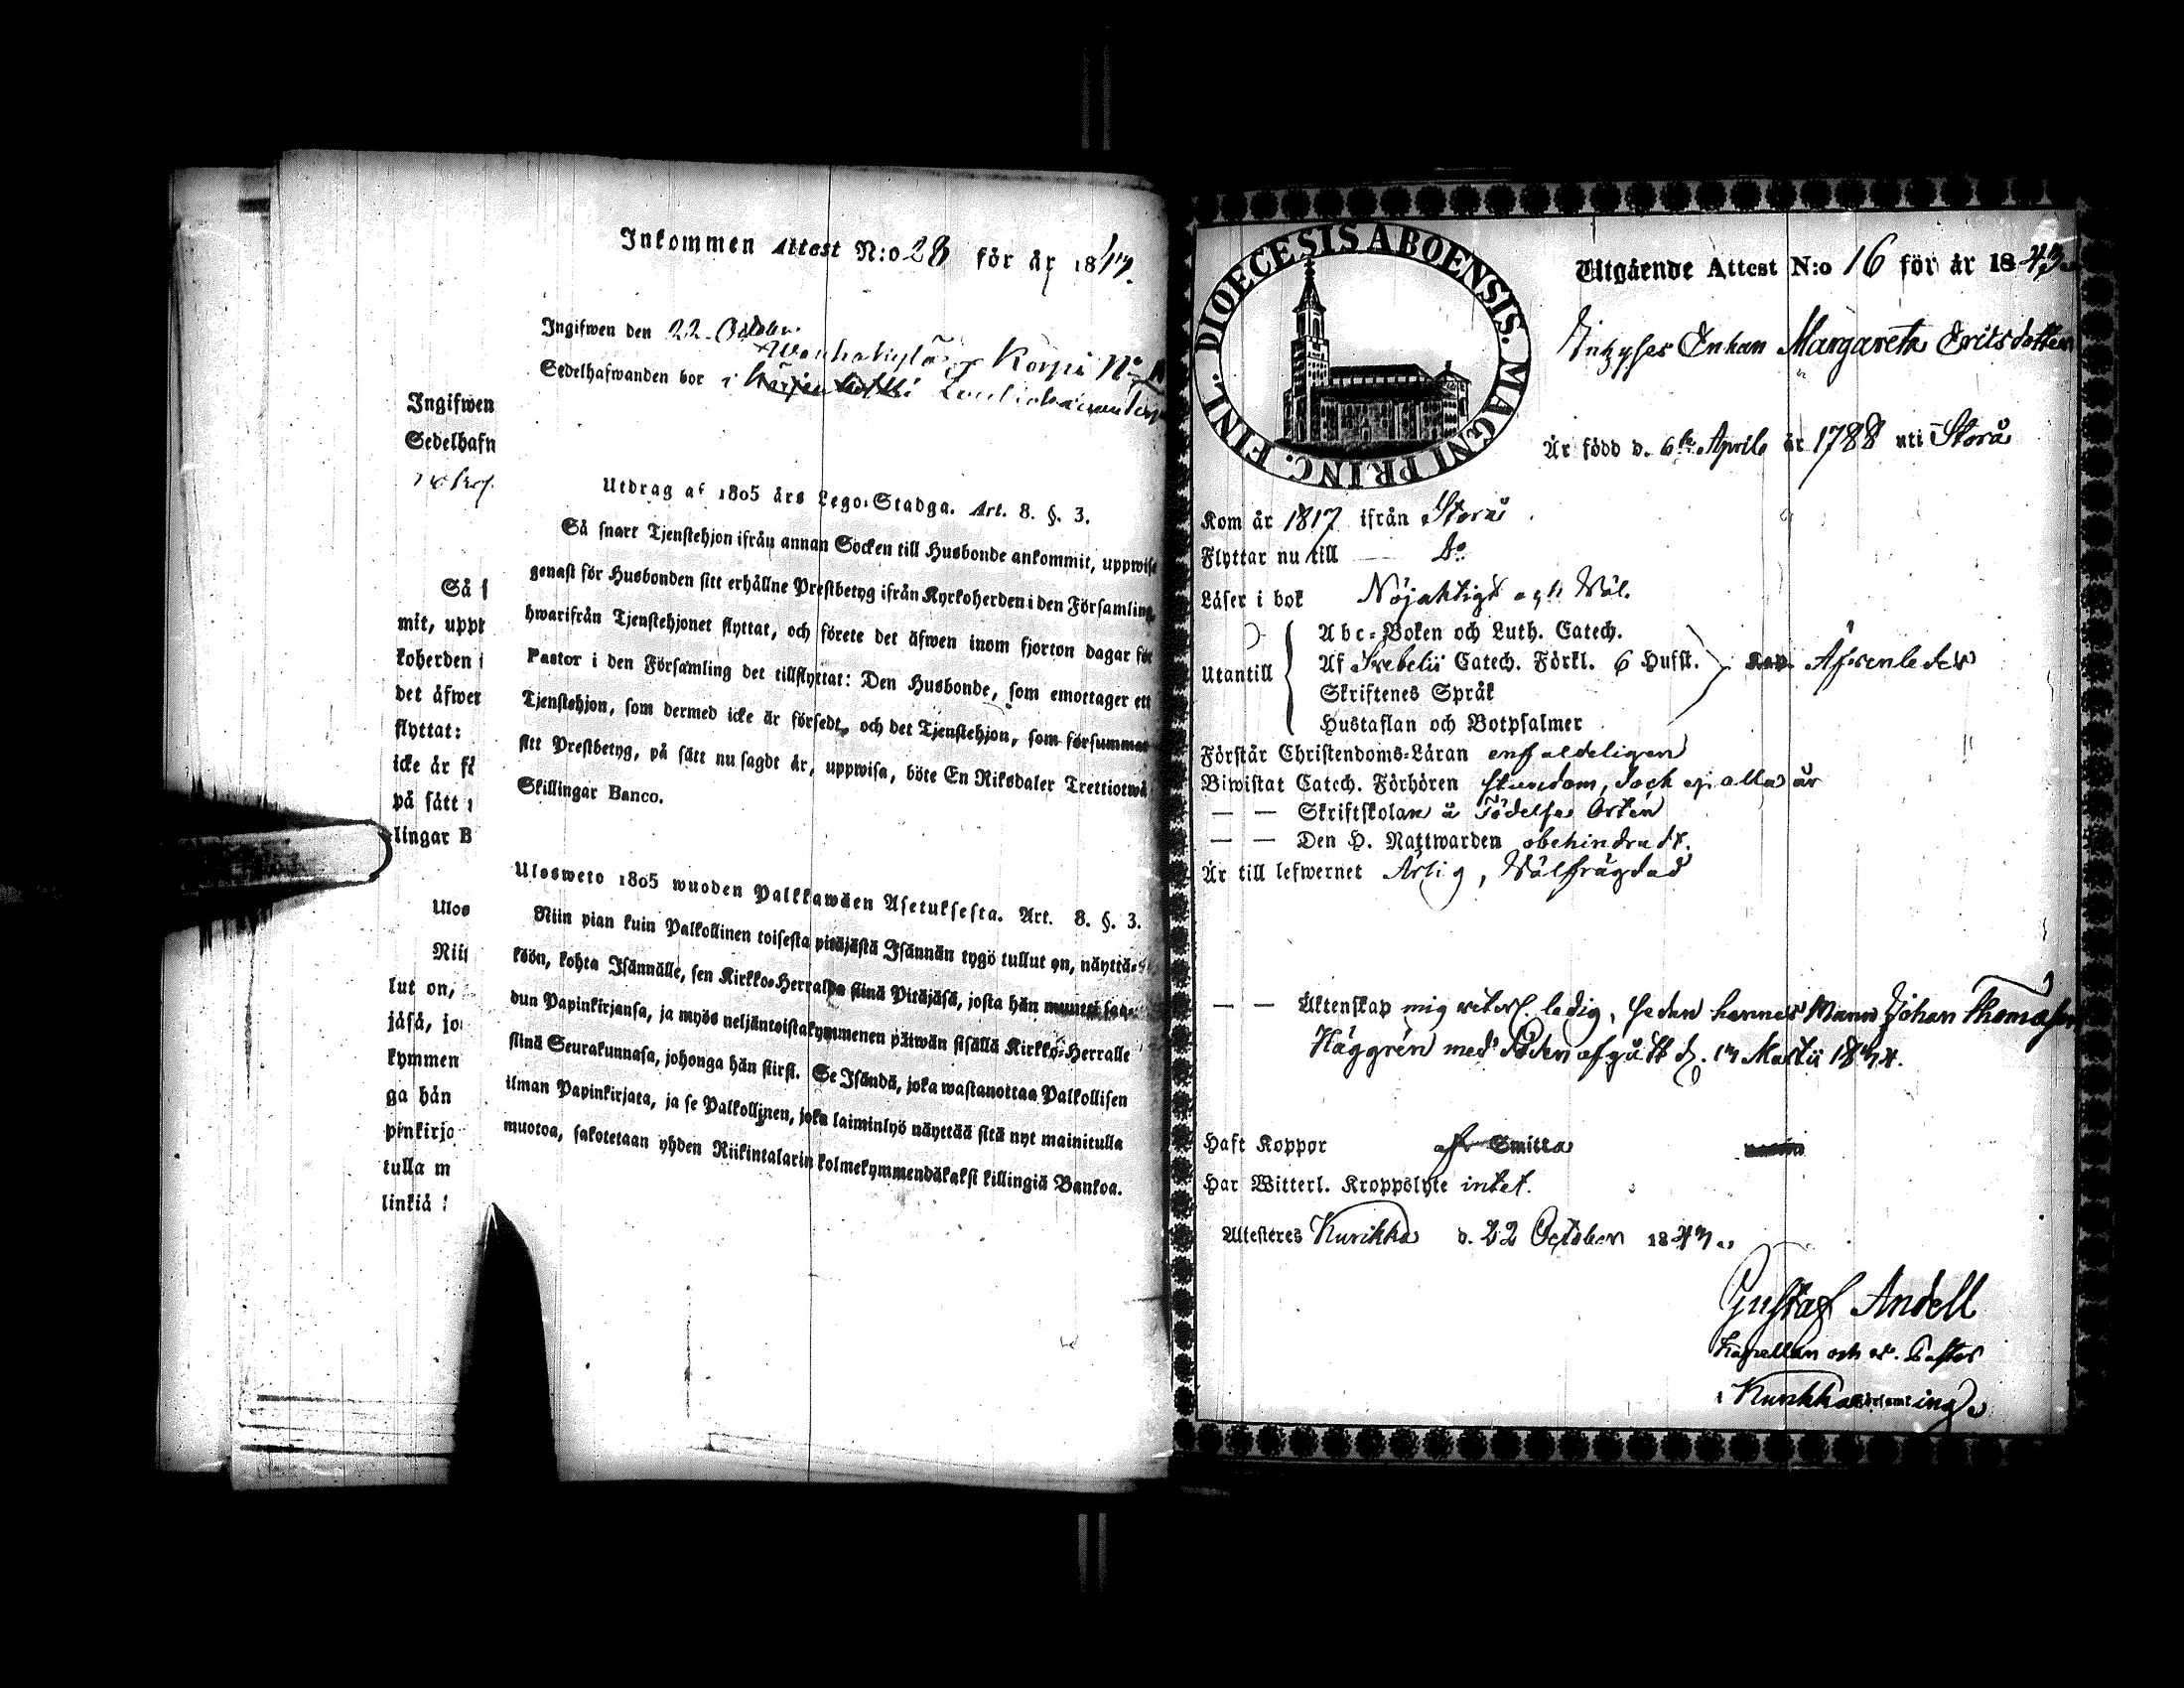 Inkommen Attest N:o 28 för år 1843.
Ingifwen den 22 October
Wanhakylä Korpi No
Sedelhafwanden bor i
Ingifwen
Sedelhafw
Utdrag af 1805 års Lego-Stadga. Art. 8. §. 3.
Så snart Tjenstehjon ifrån annan Socken till Husbonde ankommit, uppwise
genast för Husbonden sitt erhållne Prestbetyg ifrån Kyrkoherden i den Församling,
hwarifrån Tjenstehjonet flyttat, och förete det äfwen inom fjorton dagar för
Pastor i den Församling det tillflyttat: Den Husbonde, som emottager ett
Tjenstehjon, som dermed icke är försedt, och det Tjenstehjon, som försummar
sitt Prestbetyg, på sätt nu sagdt är, uppwisa, böte En Riksdaler Trettiotwå
Skillingar Banco.
Ulosweto 1805 wuoden Palkkawäen Asetuksesta. Art. 8. §. 3.
Niin pian kuin Palkollinen toisesta pitäjästä Isännän tygö tullut on, näyttä-
köön, kohta Isännälle, sen Kirkko-Herralda siinä Pitäjäsä, josta hän muutti saa-
dun Papinkirjansa, ja myös neljäntoistakymmenen päiwän sisällä Kirkko-Herralle
siinä Seurakunnasa, johonga hän siirsi. Se Isändä, joka wastanottaa Palkollisen
ilman Papinkirjata, ja se Palkollinen, joka laiminlyö näyttää sitä nyt mainitulla
muotoa, sakotetaan yhden Riikintalarin kolmekymmendäkaksi killingiä Bankoa.
Så
mit, uppw
koherden
det äfwen
flyttat:
icke är fö
på sätt
lingar B
Ulos
Nii
lut on,
jäsä, jo
kymmen
ga hän
pinkirja
tulla m
linkiä
DIOECESIS ABOENSIS. MAGNI PRINC. FINL.
Utgående Attest N:o 16 för år 1843.
Inhyses Enkan Margareta Ericsdotter
Är född d. 6te April år 1788 uti Storå
Kom år 1817 ifrån Storå
Flyttar nu till Do
Läser i bok Nöjaktigt och Wäl.
Utantill
Abc-Boken och Luth. Catech.
Af Svebelii Catech. Förkl. 6 Hufst. Äfvenledes
Skriftenes Språk
Hustaflan och Botpsalmer
Förstår Christendoms-Läran enfaldeligen
Biwistat Catech. Förhören stundom, dock ej alla år
— — Skriftskolan å Födelse Orten
— — Den H. Nattwarden obehindradt.
Är till lefwernet Ärlig, Wälfrägdad
— — Äktenskap mig veterl. ledig, sedan hennes Mann Johan Thomasson
Häggrén med döden afgått d. 17 Martii 1834.
Haft Koppor af Smitta
Har Witterl. Kroppslyte intet.
Attesteres Kurikka d. 22 October 1843.
Gustaf Andell
Kapellan och v. Pastor
i Kurikka Församling.